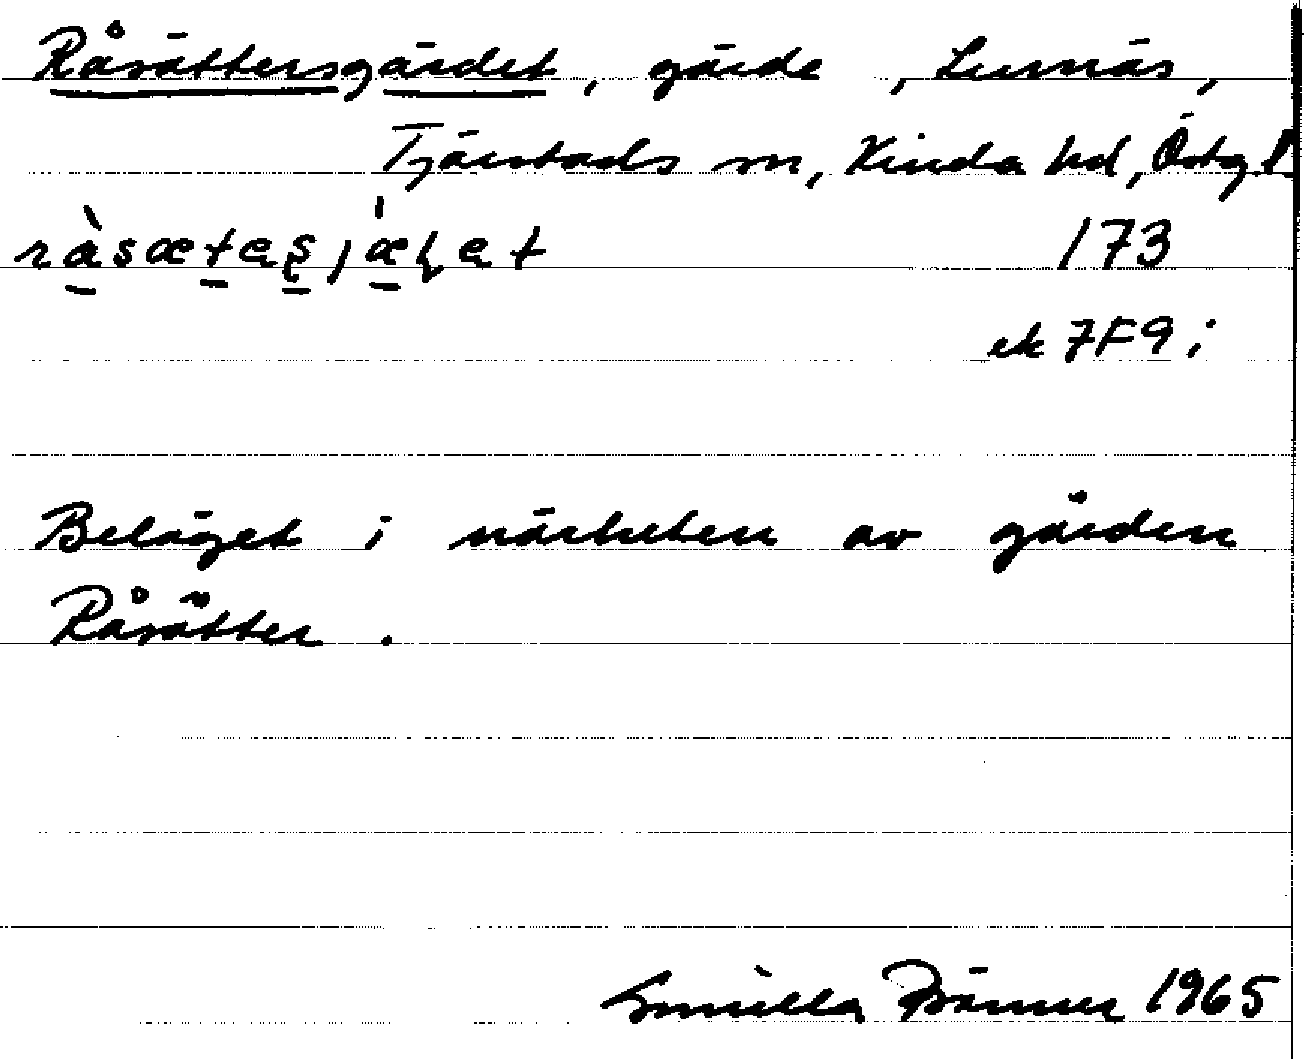 Råsättersgärdet, gärde, Lurnäs,
Tjärstads sn, Kinda hd, Östg l.
ràsætes̩jæ̀ḷet
173
ek 7F9i
Beläget i närheten av gården
Råsätter.
Gunilla Bönner 1965